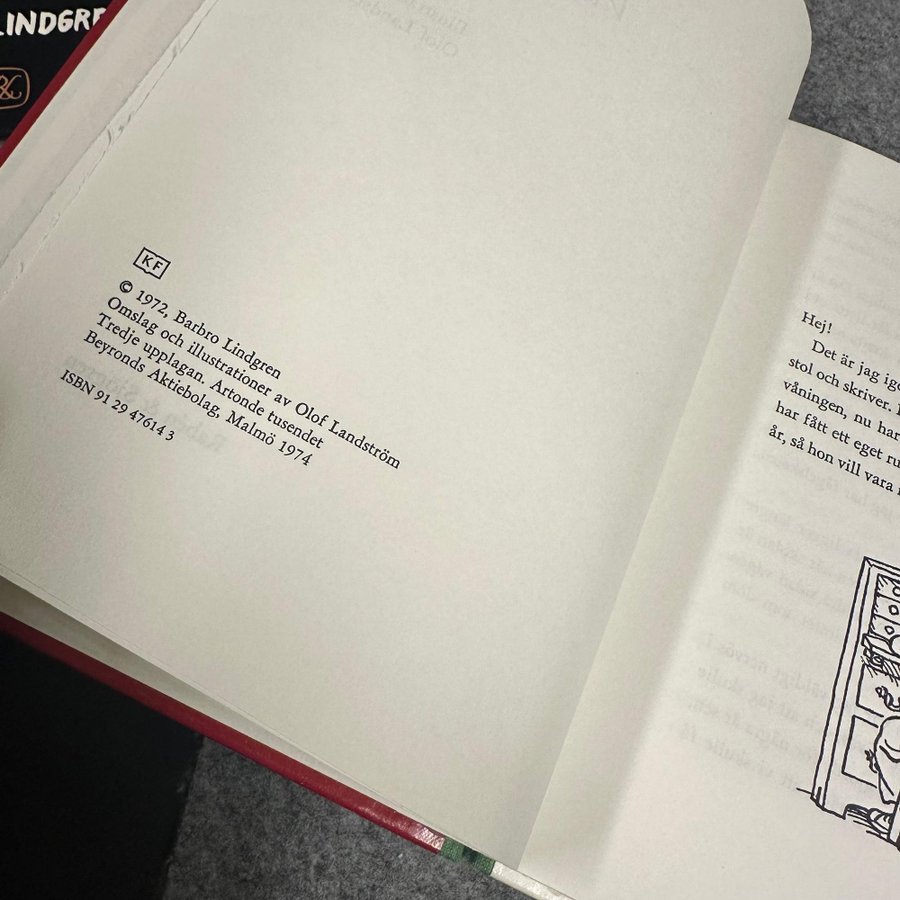 LINDGRE
KF
© 1972, Barbro Lindgren
Omslag och illustrationer av Olof Landström
Tredje upplagan. Artonde tusendet
Beyronds Aktiebolag, Malmö 1974
ISBN 91 29 47614 3
Hej!
Det är jag ige
stol och skriver.
våningen, nu har
har fått ett eget ru
år, så hon vill vara